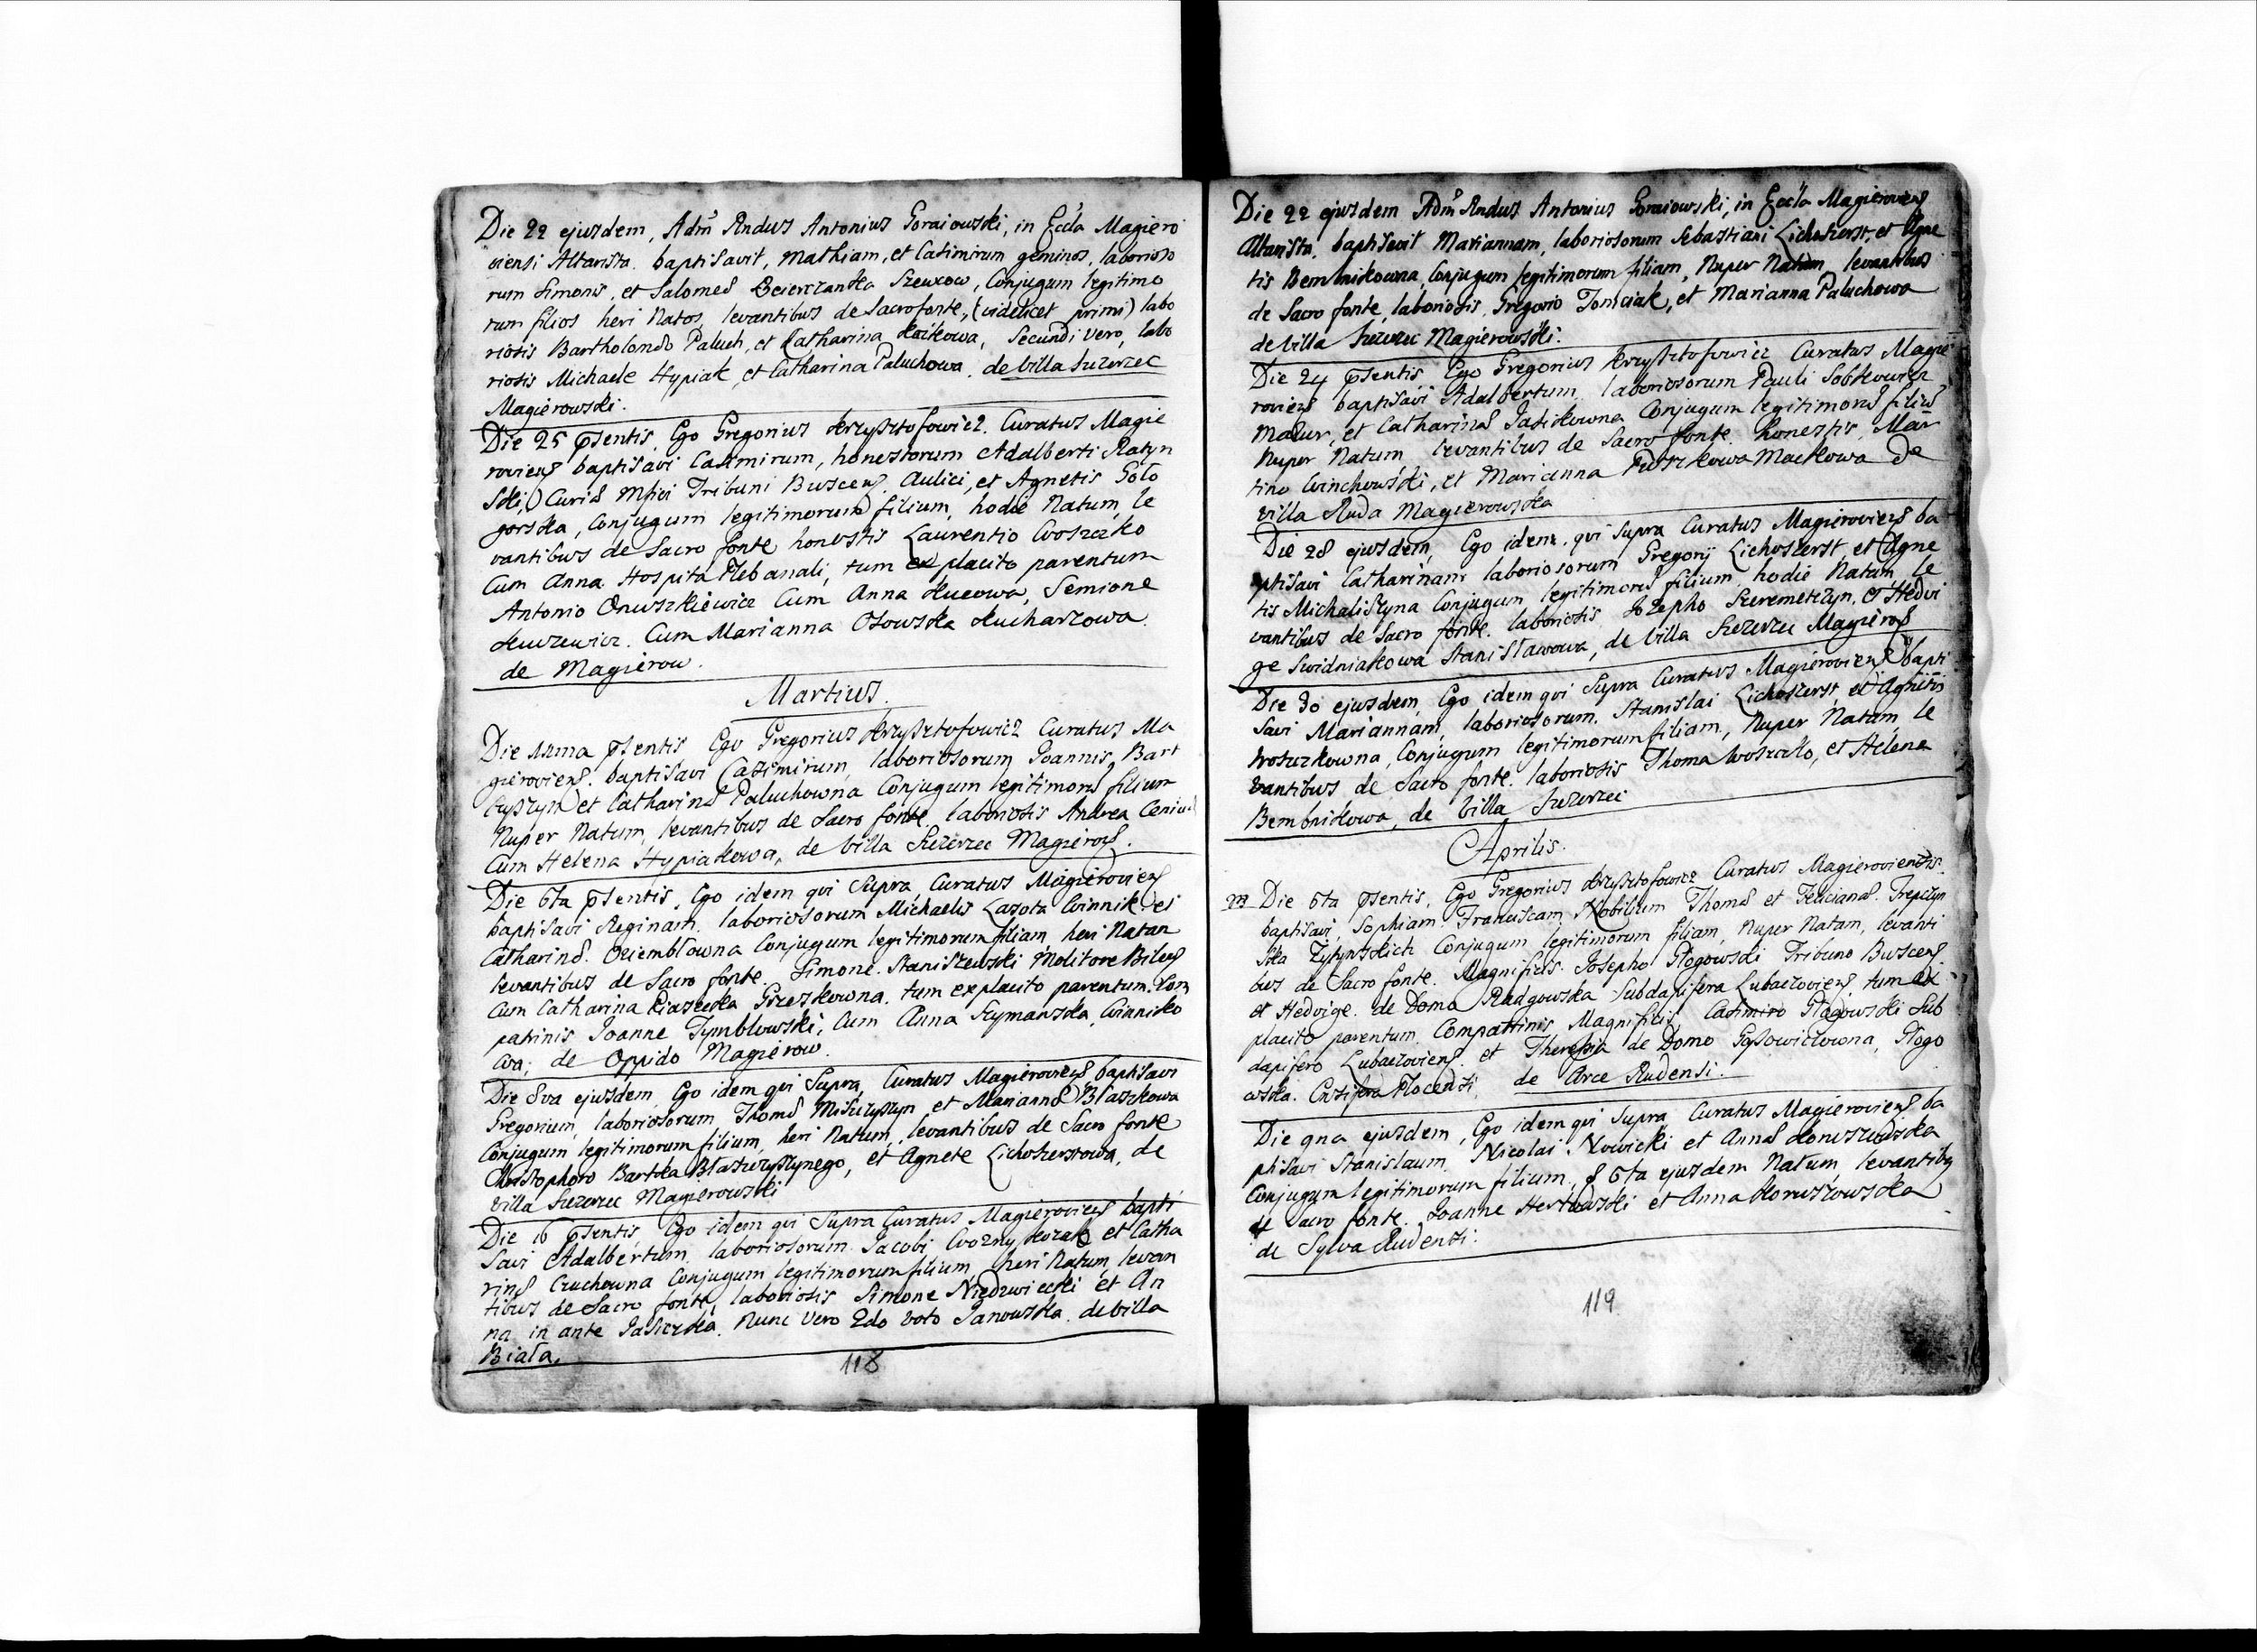 Die 22 ejusdem, Adm Rndus Antonius Goraiowski, in Eccla Magiero
viensi Altarista. baptisavit, Mathiam, et Casimirum geminos, laborioso
rum Simonis, et Salomes Szewcow, Conjugum legitimo
rum filios heri Natos, levantibus de Sacro fonte, (videlicet primi) labo
riosis Bartholomeo Paluch, et Catharina Secundi vero, labo
riosis Michaele Hypiak, et Catharina Paluchowa. de villa Szczerzec
Magierowski.
Die 25 psentis, Ego Gregorius Krzysztofowicz. Curatus Magie
roviens baptisavi Casimirum, honestorum Adalberti Ratyn
ski, Curiæ Mfici Tribuni Buscens. Aulici, et Agnetis Goło
gorska, Conjugum legitimorum filium, hodie Natum, le
vantibus de Sacro fonte honestis Laurentio Woszczko
Cum Anna Hospita Plebanali, tum ex placito parentum
Antonio Onuszkiewicz Cum Anna Semione
Cum Marianna Osowska Kucharzowa.
de Magierow.
Martius.
Die 1ma psentis Ego Gregorius Krzysztofowicz Curatus Ma
gieroviens. baptisavi Casimirum, laboriosorum Joannis Bart
et Catharinæ Paluchowna Conjugum legitimorum filium
Nuper Natum, levantibus de Sacro fonte. laboriosis Andrea
Cum Helena Hypiakowa, de villa Szczerzec Magierows.
Die 6ta psentis, Ego idem qui Supra, Curatus Magieroviens
baptisavi Reginam. laboriosorum Michaelis Lazota Winnik et
Catharinæ. Conjugum legitimorum filiam, heri Natam
levantibus de Sacro fonte. Simone. Staniszewski Molitore
Cum Catharina Grzeszkowna. tum ex placito parentum. Com
patrinis Joanne Tymblowski, Cum Anna Szymanska, Winniko
wa; de Oppido Magierow.
Die 8va ejusdem, Ego idem qui Supra, Curatus Magieroviens baptisavi
Gregorium, laboriosorum Thomæ et Mariannæ Błaszkowa
Conjugum legitimorum filium, heri Natum, levantibus de Sacro fonte
Christophoro Bartka et Agnete Lichoszerstowa, de
villa Szczerzec Magierowski
Die 16 psentis, Ego idem qui Supra Curatus Magieroviens bapti
savi Adalbertum. laboriosorum. Jacobi Wozny Kozak et Catha
rinæ Czuchowna Conjugum legitimorum filium, heri Natum, levan
tibus de Sacro fonte, laboriosis Simone Niedzwiecki et An
na in ante Nunc Vero 2do voto Janowska. de villa
Biała.
118
Die 22 ejusdem Adm Rndus Antonius Goraiowski, in Eccla Magieroviens
Altarista, baptisavit Mariannam, laboriosorum Sebastiani Lichoszerst, et Agne
tis Bembnikowna, Conjugum legitimorum filiam, Nuper Natam, levantibus
de Sacro fonte, laboriosis, Gregorio Tomciak, et Marianna Paluchowa
de villa Szczerzec Magierowski.
Die 24 psentis Ego Gregorius Krzysztofowicz Curatus Magie
roviens baptisavi Adalbertum. laboriosorum Pauli
Mazur, et Catharinæ Conjugum legitimorum filium
Nuper Natum, levantibus de Sacro fonte. honestis, Mar
tino et Marianna Maćkowa de
villa Ruda Magierowska
Die 28 ejusdem, Ego idem, qui supra Curatus Magieroviens ba
ptisavi Catharinam laboriosorum Gregorij Lichoszerst, et Agne
tis Michaliszyna Conjugum legitimorum filium, hodie Natam, le
vantibus de Sacro fonte. laboriosis, Jozepho Szeremeticzyn, et Hedvi
ge Swidniakowa Stanisławowa, de villa Szczerzec Magierows
Die 30 ejusdem, Ego idem qui Supra Curatus Magieroviens bapti
savi Mariannam, laboriosorum. Stanislai Lichoszerst, et Agnetis
Woszczkowna, Conjugum legitimorum filiam, Nuper Natam, le
vantibus de Sacro fonte. laboriosis Thoma Woszczko, et Helena
Bembnikowa, de villa Szczerzec
Aprilis.
Die 6ta psentis, Ego Gregorius Krzysztofowicz Curatus Magieroviensis.
baptisavi, Sophiam Franciscam, Nobilium Thomæ et Felicianæ.
Conjugum legitimorum filiam, Nuper Natam, levanti
bus de Sacro fonte. Magnificis. Josepho Głogowski Tribuno Buscens.
et Hedvige. de Domo Subdapifera Lubaczoviens, tum ex
placito parentum Compatrinis Magnificis, Casimiro Głogowski Sub
dapifero Lubaczoviens. et Theresia de Domo Głogo
wska. de Arce Rudensi.
Die 9na ejusdem, Ego idem qui Supra, Curatus Magieroviens, ba
ptisavi Stanislaum. Nicolai Nowicki et Annæ
Conjugum legitimorum filium, 6ta ejusdem Natum, levantibus
de Sacro fonte. Joanne et Anna
de Sylva Rudensi.
119